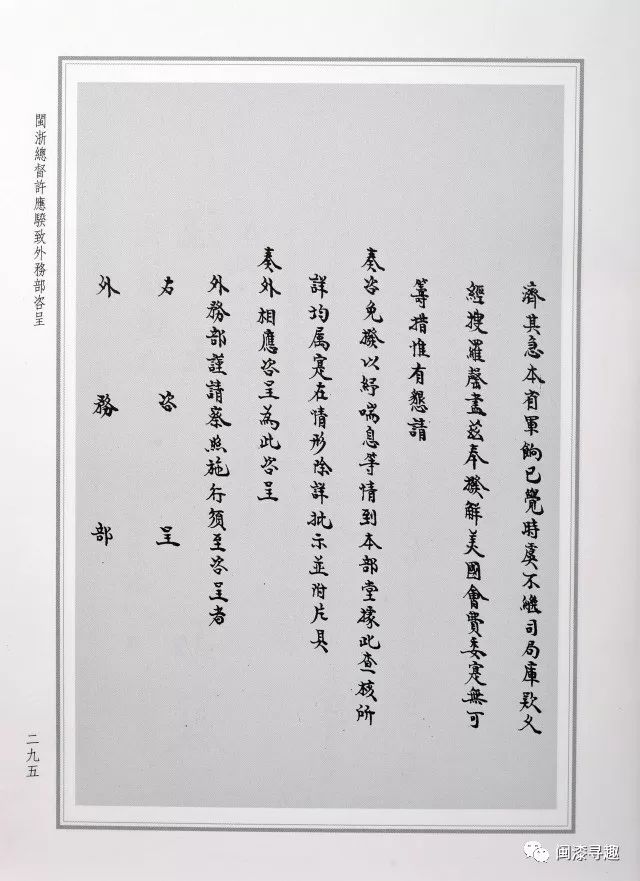 濟其急本省軍餉已覺時虞不繼司局庫款又
經搜羅罄盡茲奉撥解美國會費委寔無可
籌措惟有懇請
奏咨免撥以紓喘息等情到本部堂據此查核所
詳均属寔在情形除詳批示並附片具
奏外相應咨呈為此咨呈
外務部謹請察照施行須至咨呈者
右咨呈
外務部
閩浙總督許應騤致外務部咨呈
二九五
闽漆寻趣